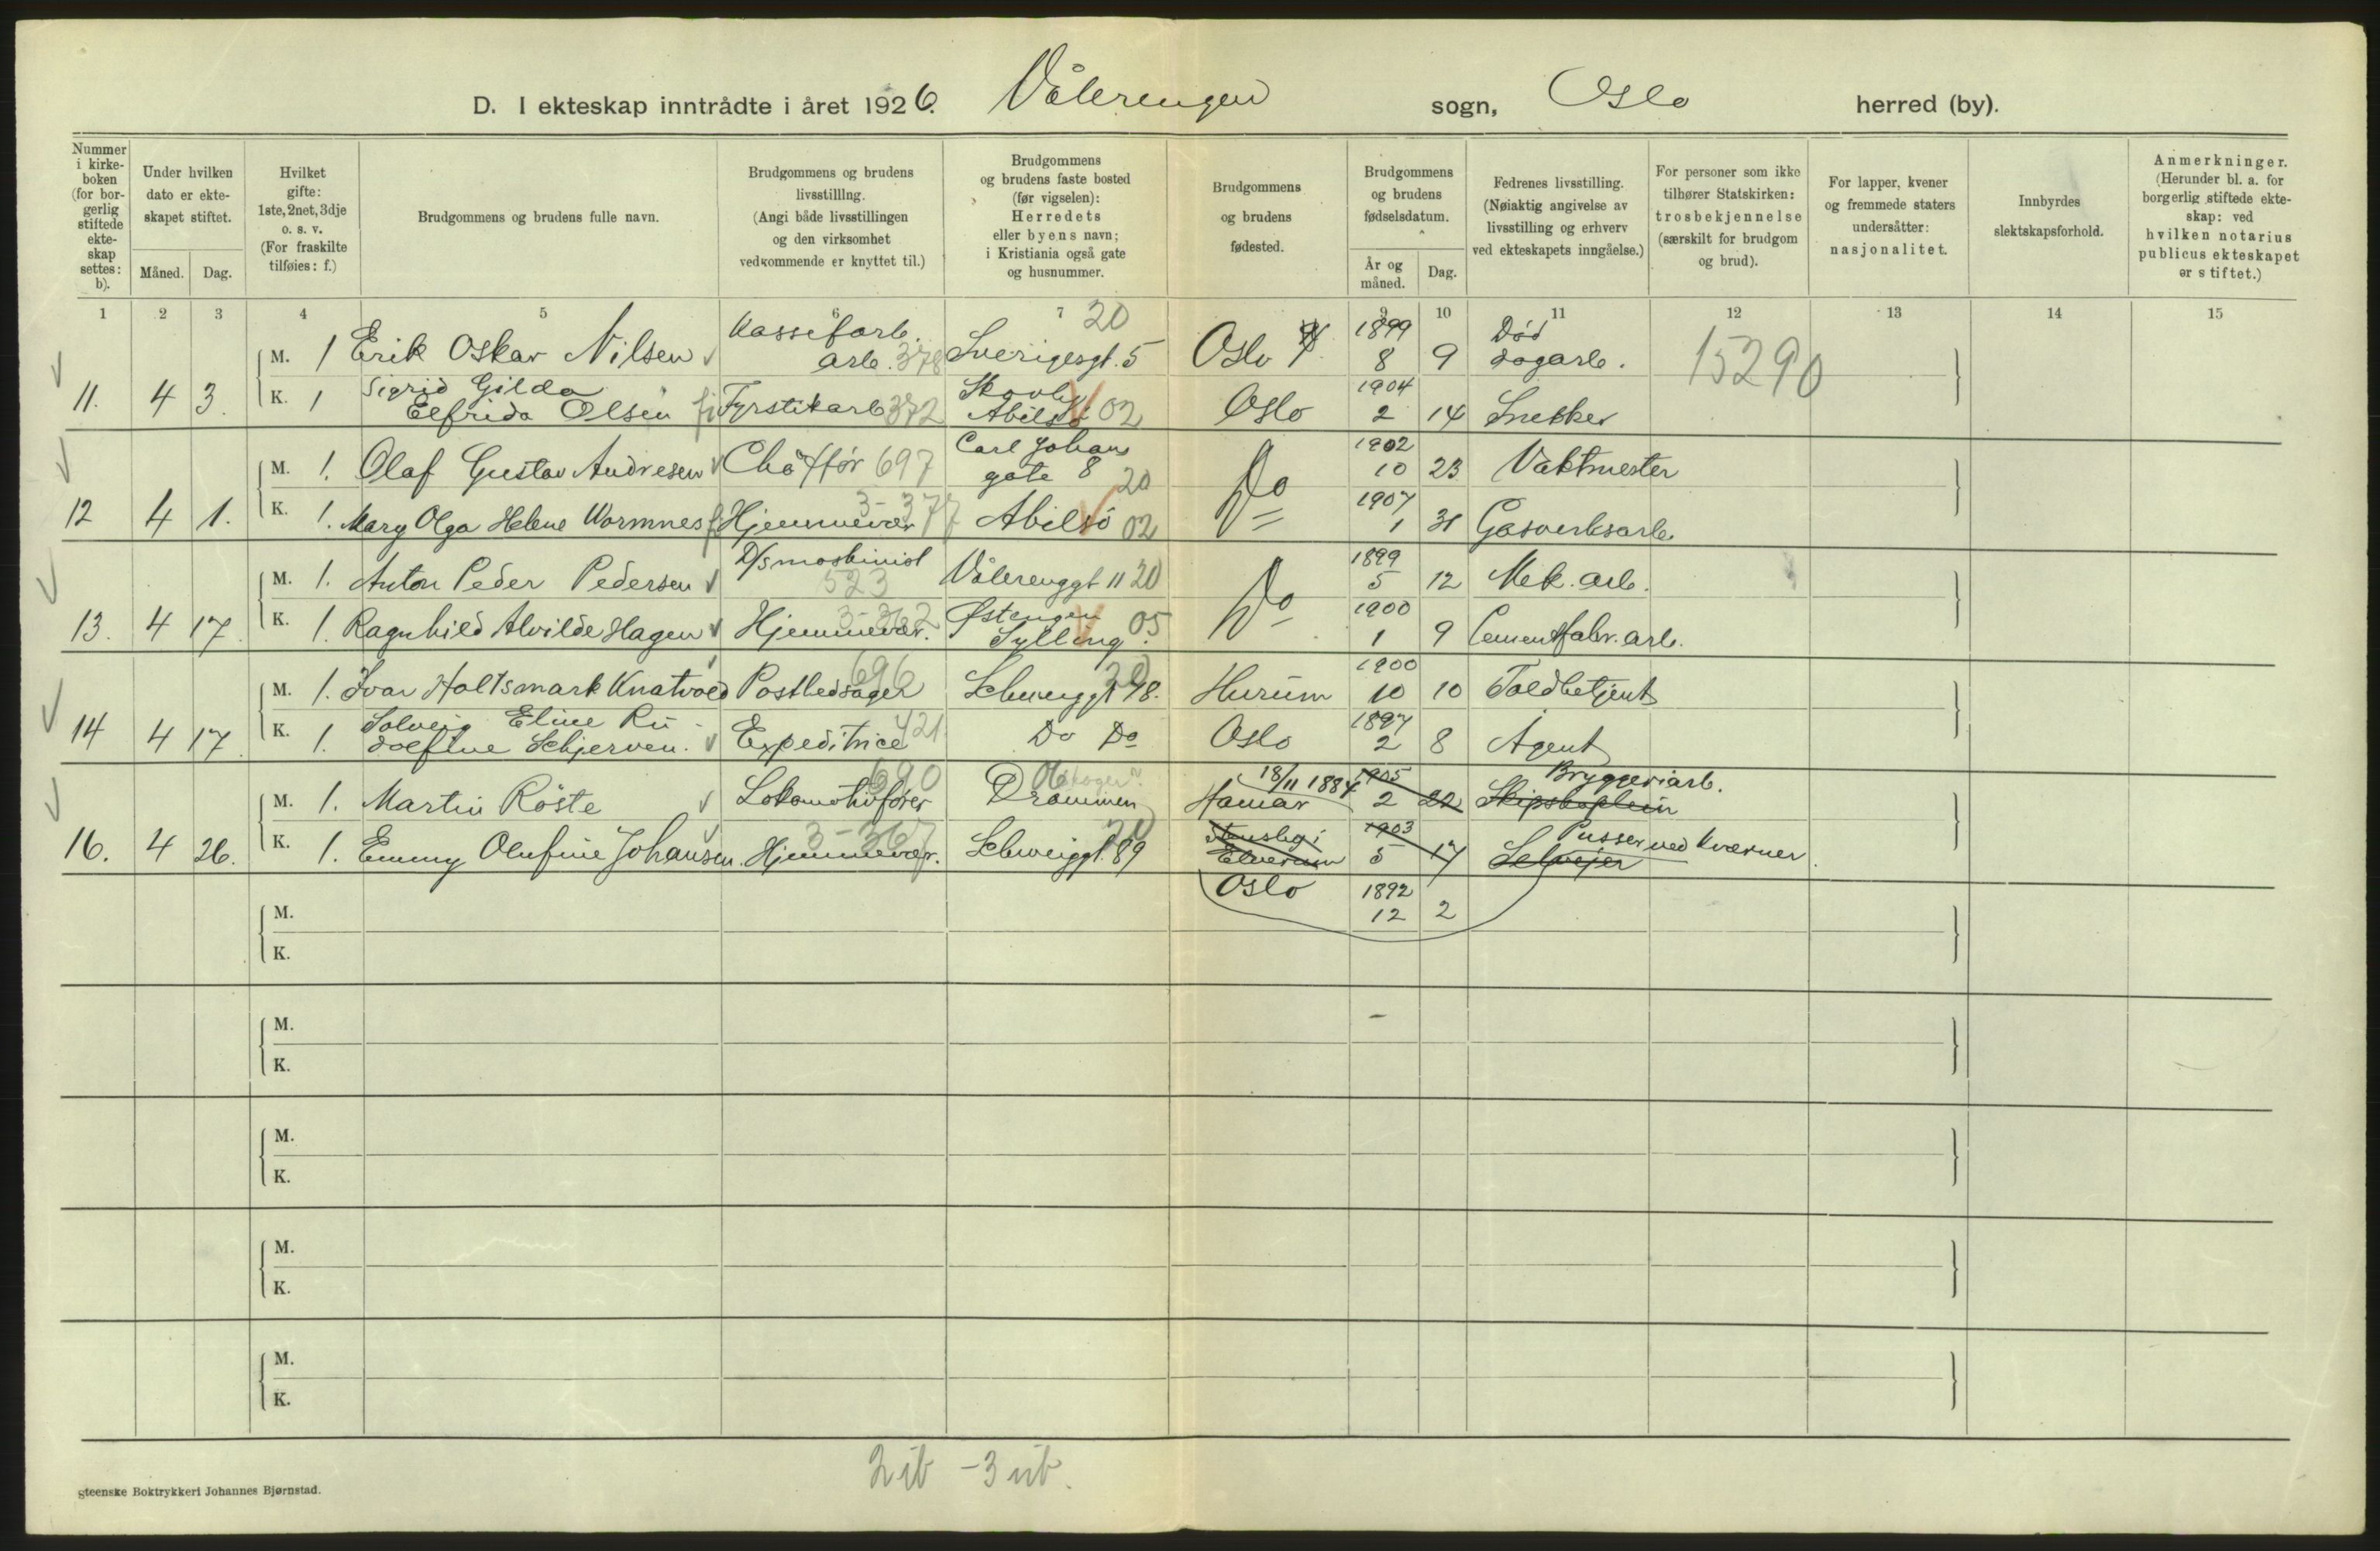 D. I ekteskap inntrådte i året 1926. Vålerengen sogn, Oslo herred (by).
Nummer i kirke- boken (for bor- gerlig stiftede ekte- skap settes: b).
Under hvilken dato er ekte- skapet stiftet.
Måned. Dag.
Hvilket gifte: 1ste, 2net, 3dje o. s. v. (For fraskilte tilføies: f.)
Brudgommens og brudens fulle navn.
Brudgommens og brudens livsstilllng. (Angi både livsstillingen og den virksomhet vedkommende er knyttet til.)
Brudgommens og brudens faste bosted (før vigselen): Herredets eller byens navn; i Kristiania også gate og husnummer.
Brudgommens og brudens fødested.
Brudgommens og brudens fødselsdatum.
År og måned. Dag.
Fedrenes livsstilling. (Nøiaktig angivelse av livsstilling og erhverv ved ekteskapets inngåelse.)
For personer som ikke tilhører Statskirken: trosbekjennelse (særskilt for brudgom og brud).
For lapper, kvener og fremmede staters undersåtter: nasjonalitet.
Innbyrdes slektskapsforhold.
Anmerkninger. (Herunder bl. a. for borgerlig stiftede ekte- skap: ved hvilken notarius publicus ekteskapet er stiftet.)
1 2 3 4 5 6 7 8 9 10 11 12 13 14 15
M. 1 Erik Oskar Nilsen Kassefarb. arb. 378 Sverigesgt. 5 20 Oslo 1899 8 9 Død dagarb. 15290
11. 4 3. K. 1 Sigrid Gilda Elfrida Olsen Fyrstikarb 372 Skovly Abilsø 02 Oslo 1904 2 14 Snekker
M. 1. Olaf Gustav Andresen Chåffør 697 Carl Johans gate 8 20 Do 1902 10 23 Vaktmester
12 4 1. K. 1. Mary Olga Helene Wormnes Hjemmevær 3-377 Abilsö 02 1907 1 31 Gasverksarb.
M. 1. Anton Peder Pedersen D/s maskinist 523 Vålerenggt 11 20 Do 1899 5 12 Mek. arb.
13. 4 17. K. 1. Ragnhild Alvilde Hagen Hjemmevær. 3-362 Østengen Sylling 05 1900 1 9 Cementfabr. arb.
M. 1. Ivar Holtsmark Knatvold Postbedsager 696 Schweiggt 78. 20 Hurum 1900 10 10 Toldbetjent
14 4 17 K. 1. Solveig Eline Ru dolfine Schjerven. Expeditrice 421 Do Do Oslo 1897 2 8 Agent
M. 1. Martin Röste Lokomotivfører 690 Drammen Hamar 18/11 1884 1905 2 22 Bryggeriarb. Skipskaptein
16. 4 26. K. 1. Emmy Olufine Johansen. Hjemmevær. 3-367 Schweiggt. 89 20 Elverum 1903 5 17 Pusser ved Kværner. Selvejer
Oslo 1892 12 2
M.
K.
M.
K.
M.
K.
M.
K.
M.
K.
2 ib - 3 ub.
gteenske Boktrykkeri Johannes Bjørnstad.